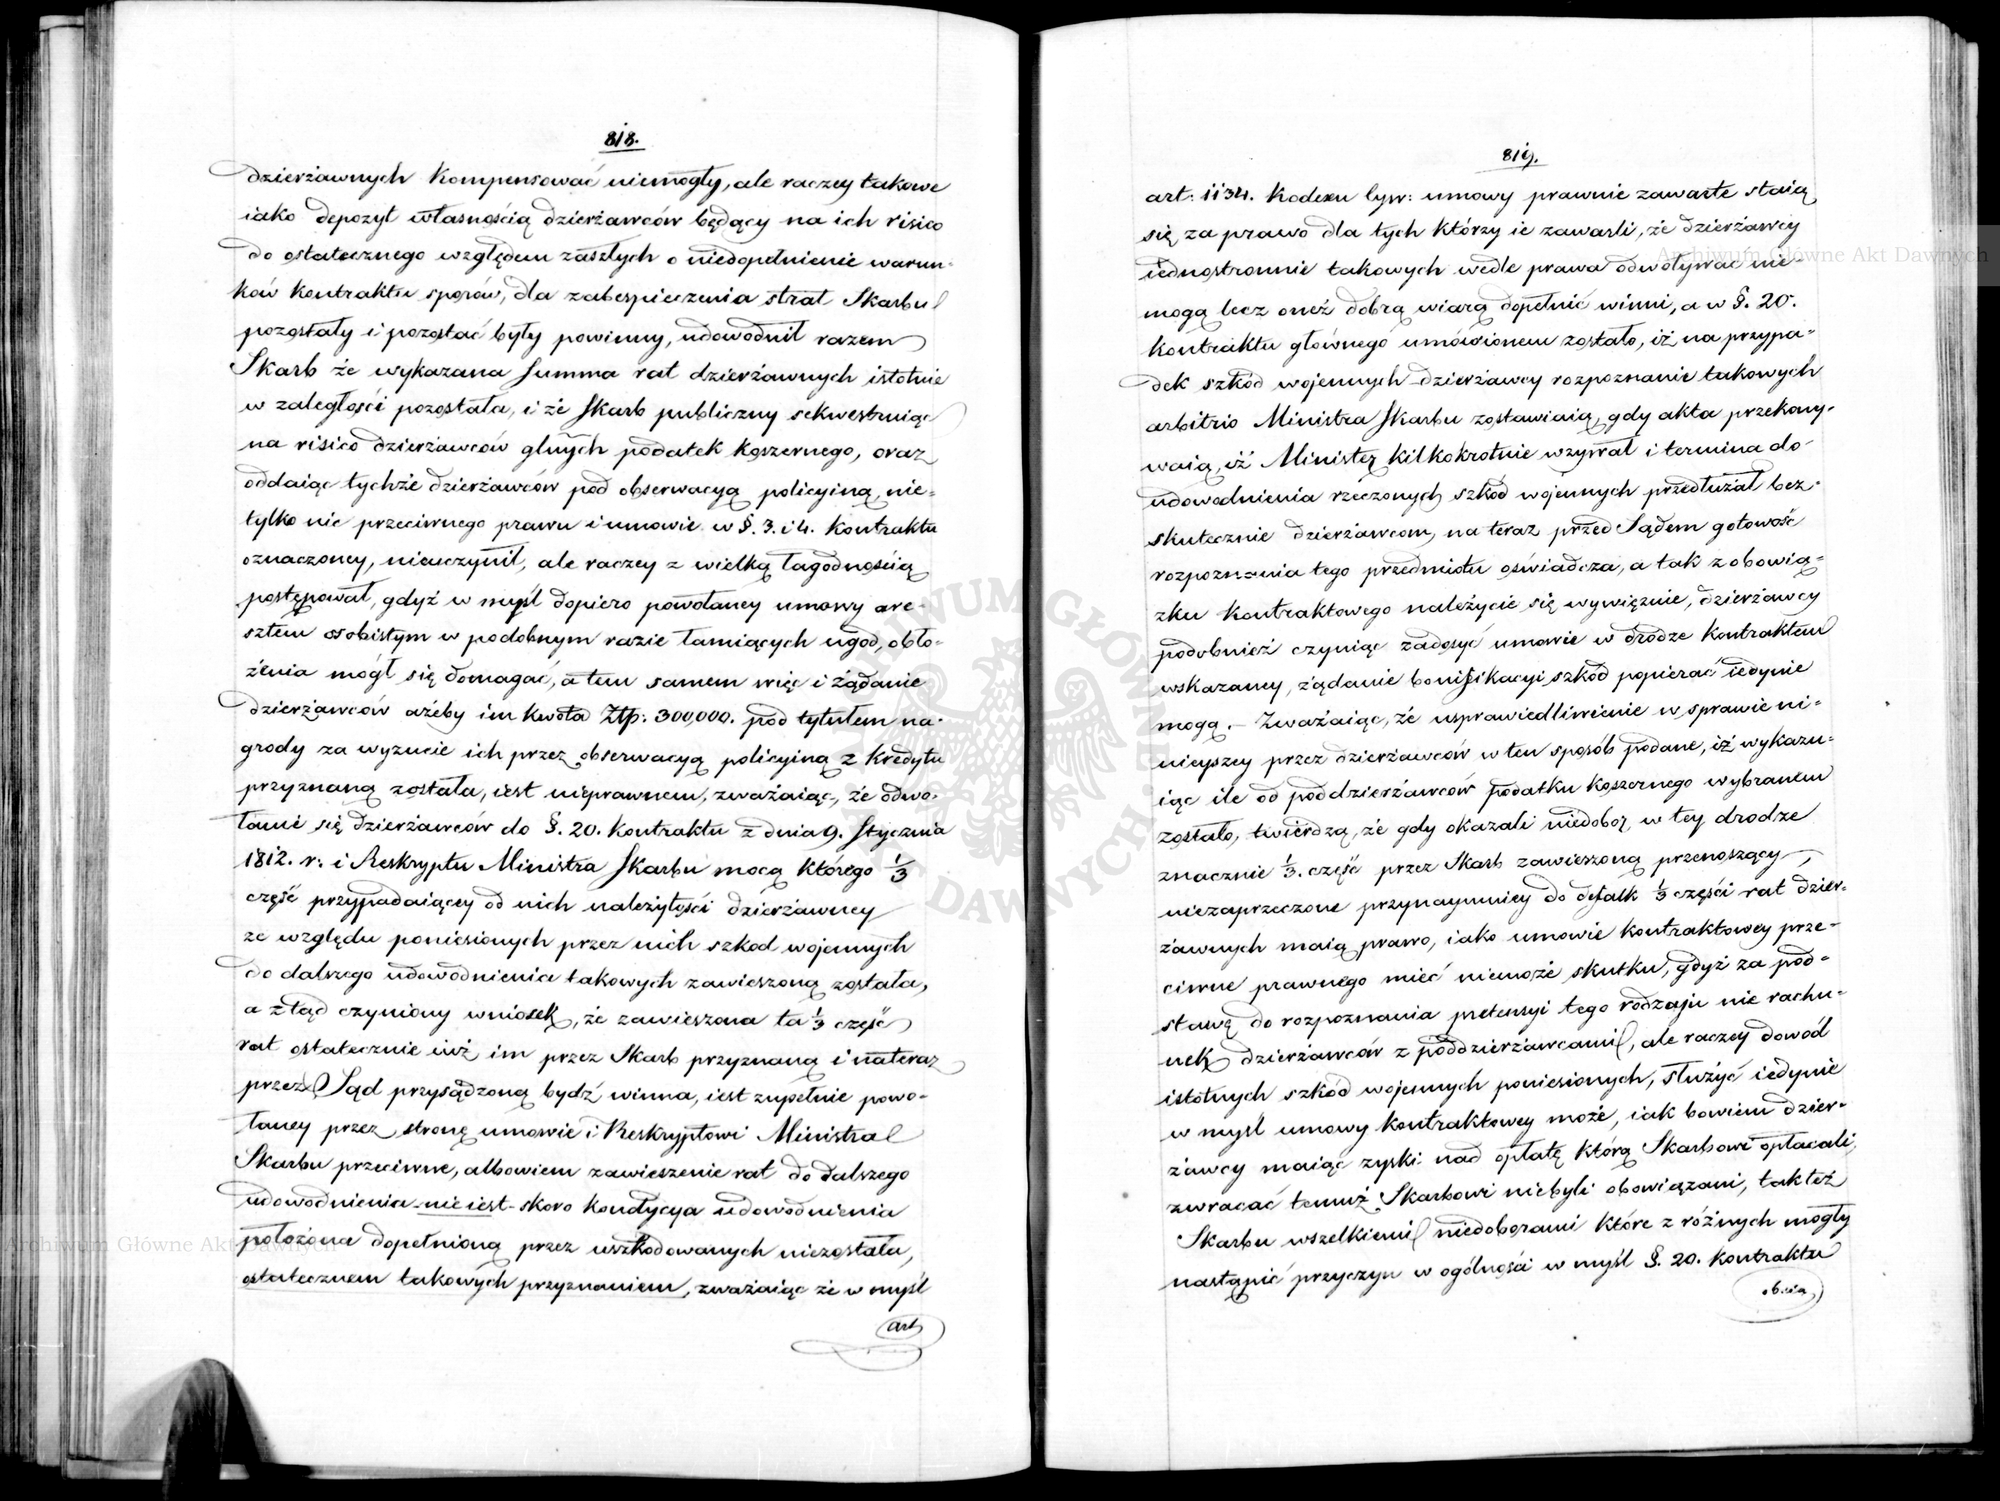 818.
dzierżawnych kompensować niemogły, ale raczey takowe
iako depozyt własnością dzierżawców będący na ich risico
do ostatecznego względem zaszłych o niedopełnienie warun-
ków kontraktu sporów, dla zabespieczenia strat Skarbu
pozostały i pozostać były powinny, udowodnił razem
Skarb że wykazana summa rat dzierżawnych istotnie
w zaległości pozostała, i że Skarb publiczny sekwestruiąc
na risico dzierżawców głnych podatek koszernego, oraz
oddaiąc tychże dzierżawców pod obserwacyą policyiną, nie-
tylko nic przeciwnego prawu i umowie w §. 3. i 4. kontraktu
oznaczoney, nieuczynił, ale raczey z wielką łagodnością
postępował, gdyż w myśl dopiero powołaney umowy are-
sztem osobistym w podobnym razie łamiących ugod, obło-
żenia mógł się domagać, a tem samem więc i żądanie
dzierżawców ażeby im kwota Złp: 300,000. pod tytułem na-
grody za wyzucie ich przez obserwacyą policyiną z kredytu
przyznaną została, iest nieprawnem, zważaiąc, że odwo-
łanie się dzierżawców do §. 20. kontraktu z dnia 9. Stycznia
1812. r. i Reskryptu Ministra Skarbu mocą którego 1/3
część przypadaiącey od nich należytości dzierżawney
ze względu poniesionych przez nich szkod wojennych
do dalszego udowodnienia takowych zawieszoną została,
a ztąd czyniony wniosek, że zawieszona ta 1/3 część
rat ostatecznie iuż im przez Skarb przyznaną i nateraz
przez Sąd przysądzoną bydź winna, iest zupełnie powo-
łaney przez stronę umowie i Reskryptowi Ministra
Skarbu przeciwne, albowiem zawieszenie rat do dalszego
udowodnienia nie iest skoro kondycya udowodnienia
położona dopełnioną przez uszkodowanych niezostała,
ostatecznem takowych przyznaniem, zważaiąc że w myśl
art
819.
art: 1134. Kodexu Cyw: umowy prawnie zawarte staią
się za prawo dla tych którzy ie zawarli, że dzierżawcy
iednostronnie takowych wedle prawa odwoływać nie-
mogą lecz oneż dobrą wiarą dopełnić winni, a w §. 20.
kontraktu głównego umówionem zostało, iż na przypa-
dek szkód wojennych dzierżawcy rozpoznanie takowych
arbitrio Ministra Skarbu zostawiaią, gdy akta przekony-
waią, iż Minister kilkokrotnie wzywał i termina do
udowodnienia rzeczonych szkód wojennych przedłużał bez-
skutecznie dzierżawcom, na teraz przed Sądem gotowość
rozpoznania tego przedmiotu oświadcza, a tak z obowią-
zku kontraktowego należycie się wywięznie, dzierżawcy
podobnież czyniąc zadosyć umowie w drodze kontraktem
wskazaney, żądanie bonifikacyi szkód popierać iedynie
mogą. – Zważaiąc, że usprawiedliwienie w sprawie ni-
nieyszey przez dzierżawców w ten sposób podane, iż wykazu-
iąc ile od poddzierżawców podatku koszernego wybranem
zostało, twierdzą, że gdy okazali niedobor w tey drodze
znacznie 1/3. część przez Skarb zawieszoną przenoszący,
niezaprzeczone przynaymniey do defalk 1/3 części rat dzier-
żawnych maią prawo, iako umowie kontraktowey prze-
ciwne prawnego mieć niemoże skutku, gdyż za pod-
stawę do rozpoznania pretensyi tego rodzaju nie rachu-
nek dzierżawców z poddzierżawcami, ale raczey dowód
istotnych szkód wojennych poniesionych, służyć iedynie
w myśl umowy kontraktowey może, iak bowiem dzier-
żawcy maiąc zyski nad opłatę którą Skarbowi opłacali,
zwracać temuż Skarbowi niebyli obowiązani, takteż
Skarbu wszelkiemi niedoborami które z różnych mogły
nastąpić przyczyn w ogólności w myśl §. 20. kontraktu